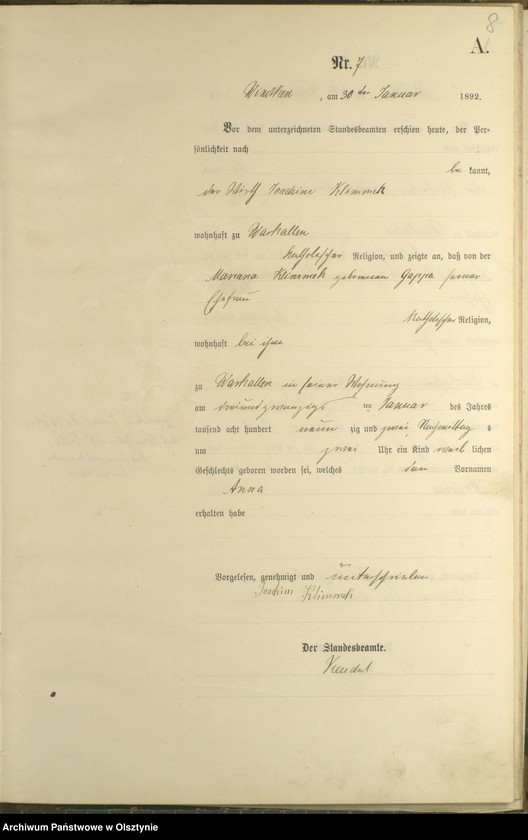 8
A.
Nr. 7
am 30 ten Januar 1892.
Vor dem unterzeichneten Standesbeamten erschien heute, der Per-
sönlichkeit nach
be kannt,
der Wirth Joachim Klimmek
wohnhaft zu Warkallen
katholischer Religion, und zeigte an, daß von der
Mariana Klimmek geborenen Gappa seiner
Ehefrau
katholischer Religion,
wohnhaft bei ihm
zu Warkallen in seiner Wohnung
am dreiundzwanzigs ten Januar des Jahres
tausend acht hundert neun zig und zwei Nachmittag s
um zwei Uhr ein Kind weib lichen
Geschlechts geboren worden sei, welches den Vornamen
Anna
erhalten habe
Vorgelesen, genehmigt und unterschrieben
Joachim Klimmek
Der Standesbeamte.
Archiwum Państwowe w Olsztynie